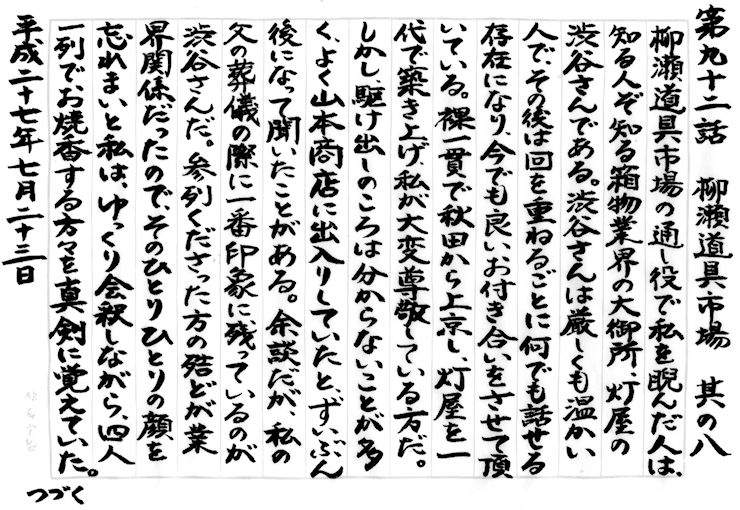 第九十二話　柳瀬道具市場　其の八
柳瀬道具市場の通し役で私を睨んだ人は、
知る人ぞ知る箱物業界の大御所、灯屋の
渋谷さんである。渋谷さんは厳しくも温かい
人で、その後は回を重ねるごとに何でも話せる
存在になり、今でも良いお付き合いをさせて頂
いている。裸一貫で秋田から上京し、灯屋を一
代で築き上げ、私が大変尊敬している方だ。
しかし、駆け出しのころは分からないことが多
く、よく山本商店に出入りしていたと、ずいぶん
後になって聞いたことがある。余談だが、私の
父の葬儀の際に一番印象に残っているのが
渋谷さんだ。参列くださった方の殆どが業
界関係だったので、そのひとりひとりの顔を
忘れまいと私は、ゆっくり会釈しながら、四人
一列でお焼香する方々を真剣に覚えていた。
平成二十七年七月二十三日
つづく